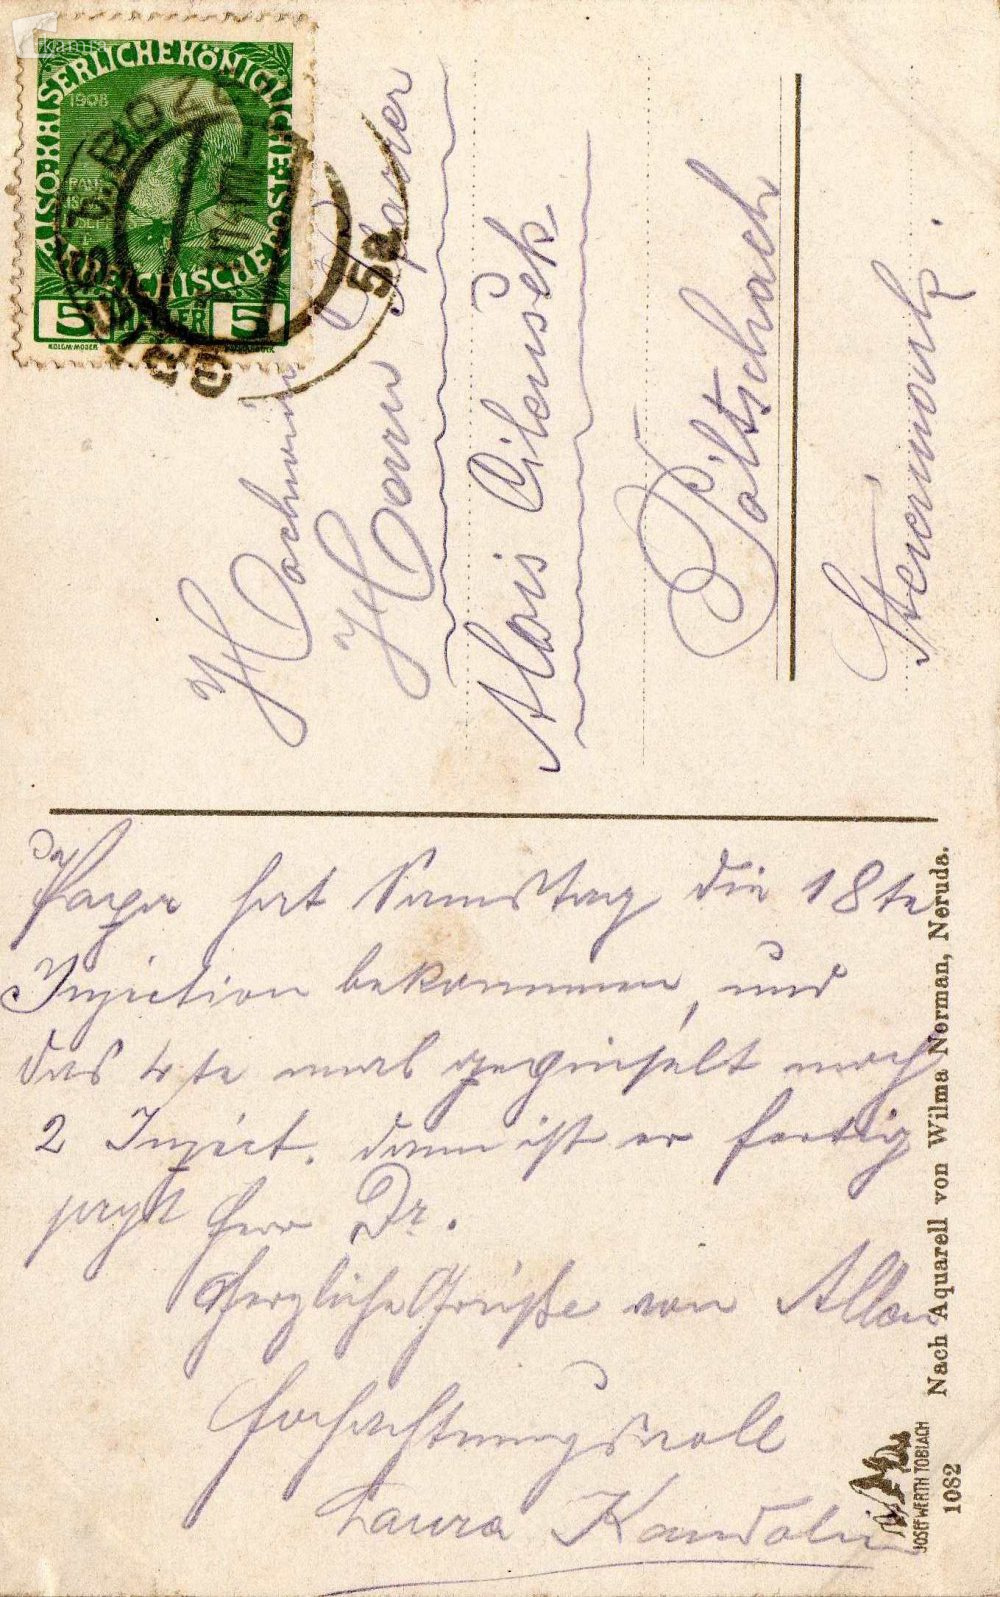 kamra
KAISERLICHE KÖNIGLICHE ÖSTERREICHISCHE POST
1908
5 HELLER 5
KOLOM·MOSER
BOZEN
5a
Hochwürden
Herrn Pfarrer
Alois Cilensek
Pöltschach
Steiermark.
Papa hat Samstag die 18te
Injection bekommen, und
das 4te mal gepinselt noch
2 Inject. dann ist er fertig
sagt Herr Dr.
Herzliche Grüße von Allen
Hochachtungsvoll
Laura
Nach Aquarell von Wilma Norman, Neruda.
JOSEF WERTH TOBLACH
1082